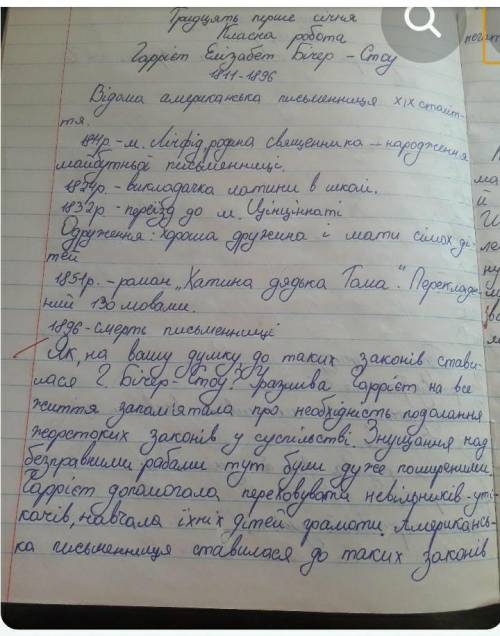 Тридцять перше січня
Класна робота
Гаррієт Елізабет Бічер - Стоу
1811-1896
Відома американська письменниця XIX століт-
тя.
1811р. - м. Лічфілд, родина священника - народження
майбутньої письменниці.
- викладачка латини в школі.
1832р - переїзд до м. Цінціннаті
Одруження: хороша дружина і мати сімох ді-
тей
1851р. - роман „Хатина дядька Тома". Перекладе-
ний 130 мовами.
1896 - смерть письменниці
Як, на вашу думку, до таких законів стави-
лася Г. Бічер - Стоу? Вразлива Гаррієт на все
життя запам'ятала про необхідність подолання
жорстоких законів у суспільстві. Знущання над
безправними рабами тут були дуже поширеними.
Гаррієт допомагала переховувати невільників-уті
качів, навчала їхніх дітей грамоти. Американсь-
ка письменниця ставилася до таких законів